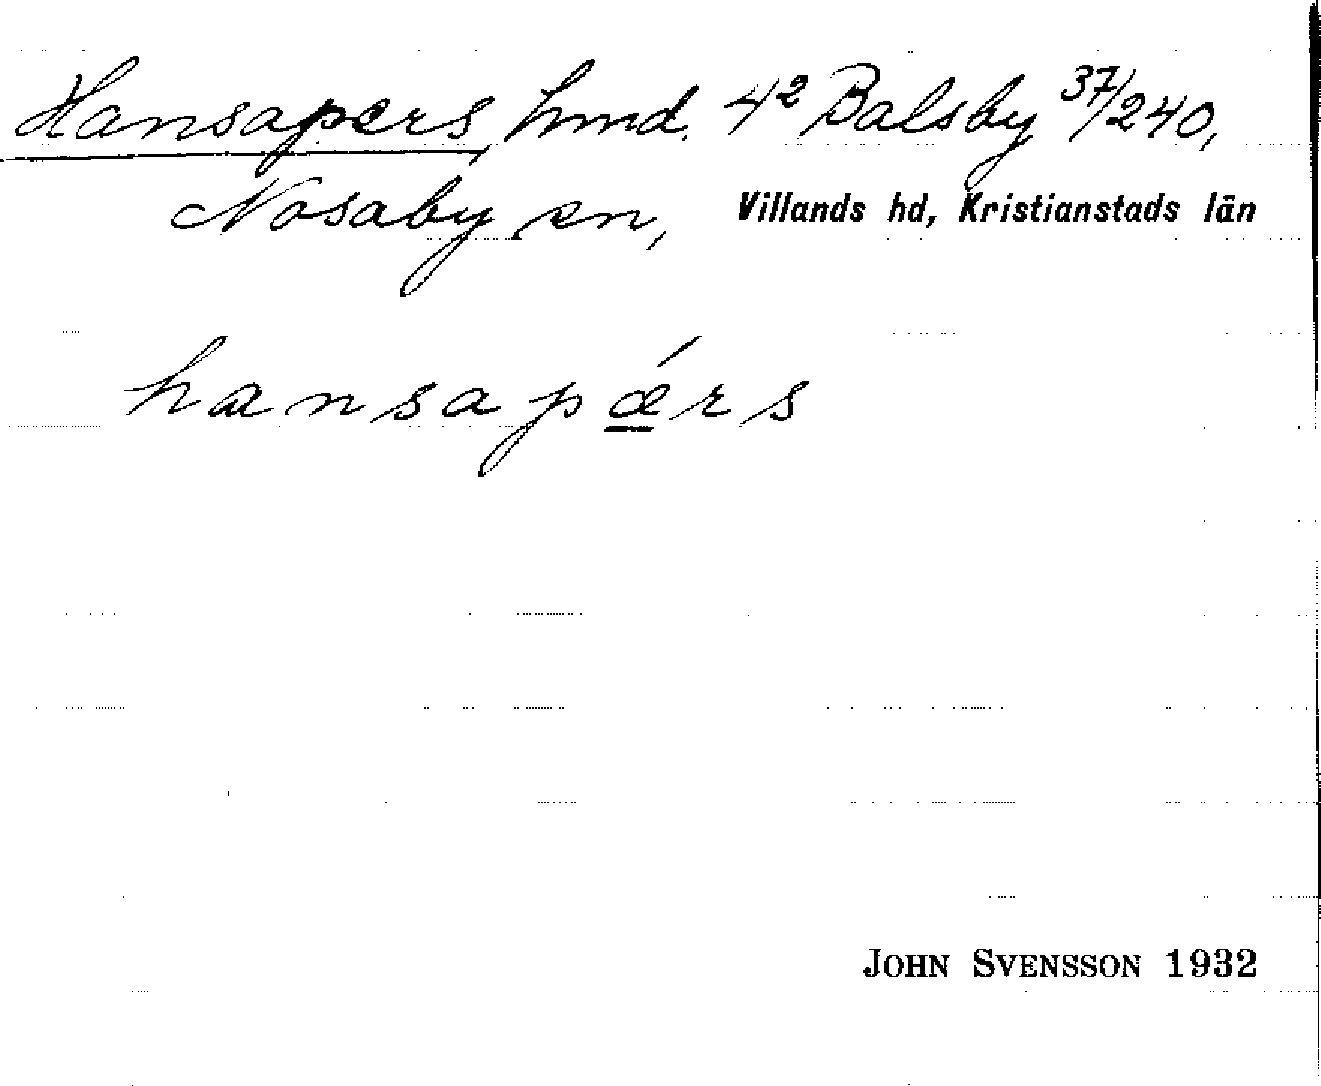 Hansapers, hmd. 4² Balsby 37/240,
Nosaby sn, Villands hd, Kristianstads län
hansapǽrs
JOHN SVENSSON 1932